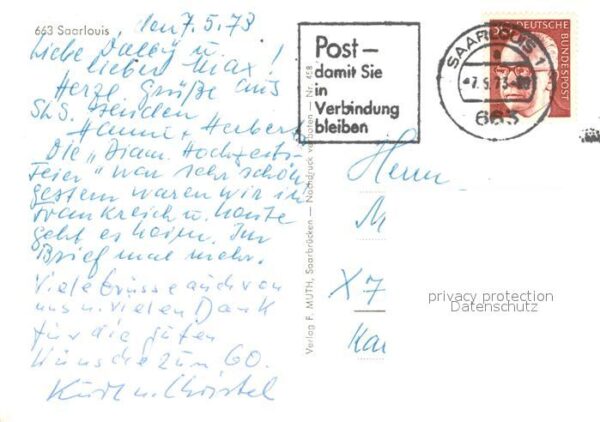 663 Saarlouis, den 7.5.73
Liebe Dolly u.
lieber Max!
Herzl. Grüße aus
Sls. senden
Hanni + Herbert
Die „Diam. Hochzeits-
feier" war sehr schön,
gestern waren wir in
Frankreich u. heute
geht es heim. Im
Brief mal mehr.
Viele Grüsse auch von
uns u. vielen Dank
für die guten
Wünsche zum 60.
Kurt u. Christel
Verlag F. MUTH, Saarbrücken — Nachdruck verboten — Nr. 458
Post –
damit Sie
in
Verbindung
bleiben
SAARLOUIS 1
a
-7.5.73-
663
DEUTSCHE
BUNDESPOST
Herrn
M
X7
Kar
privacy protection
Datenschutz